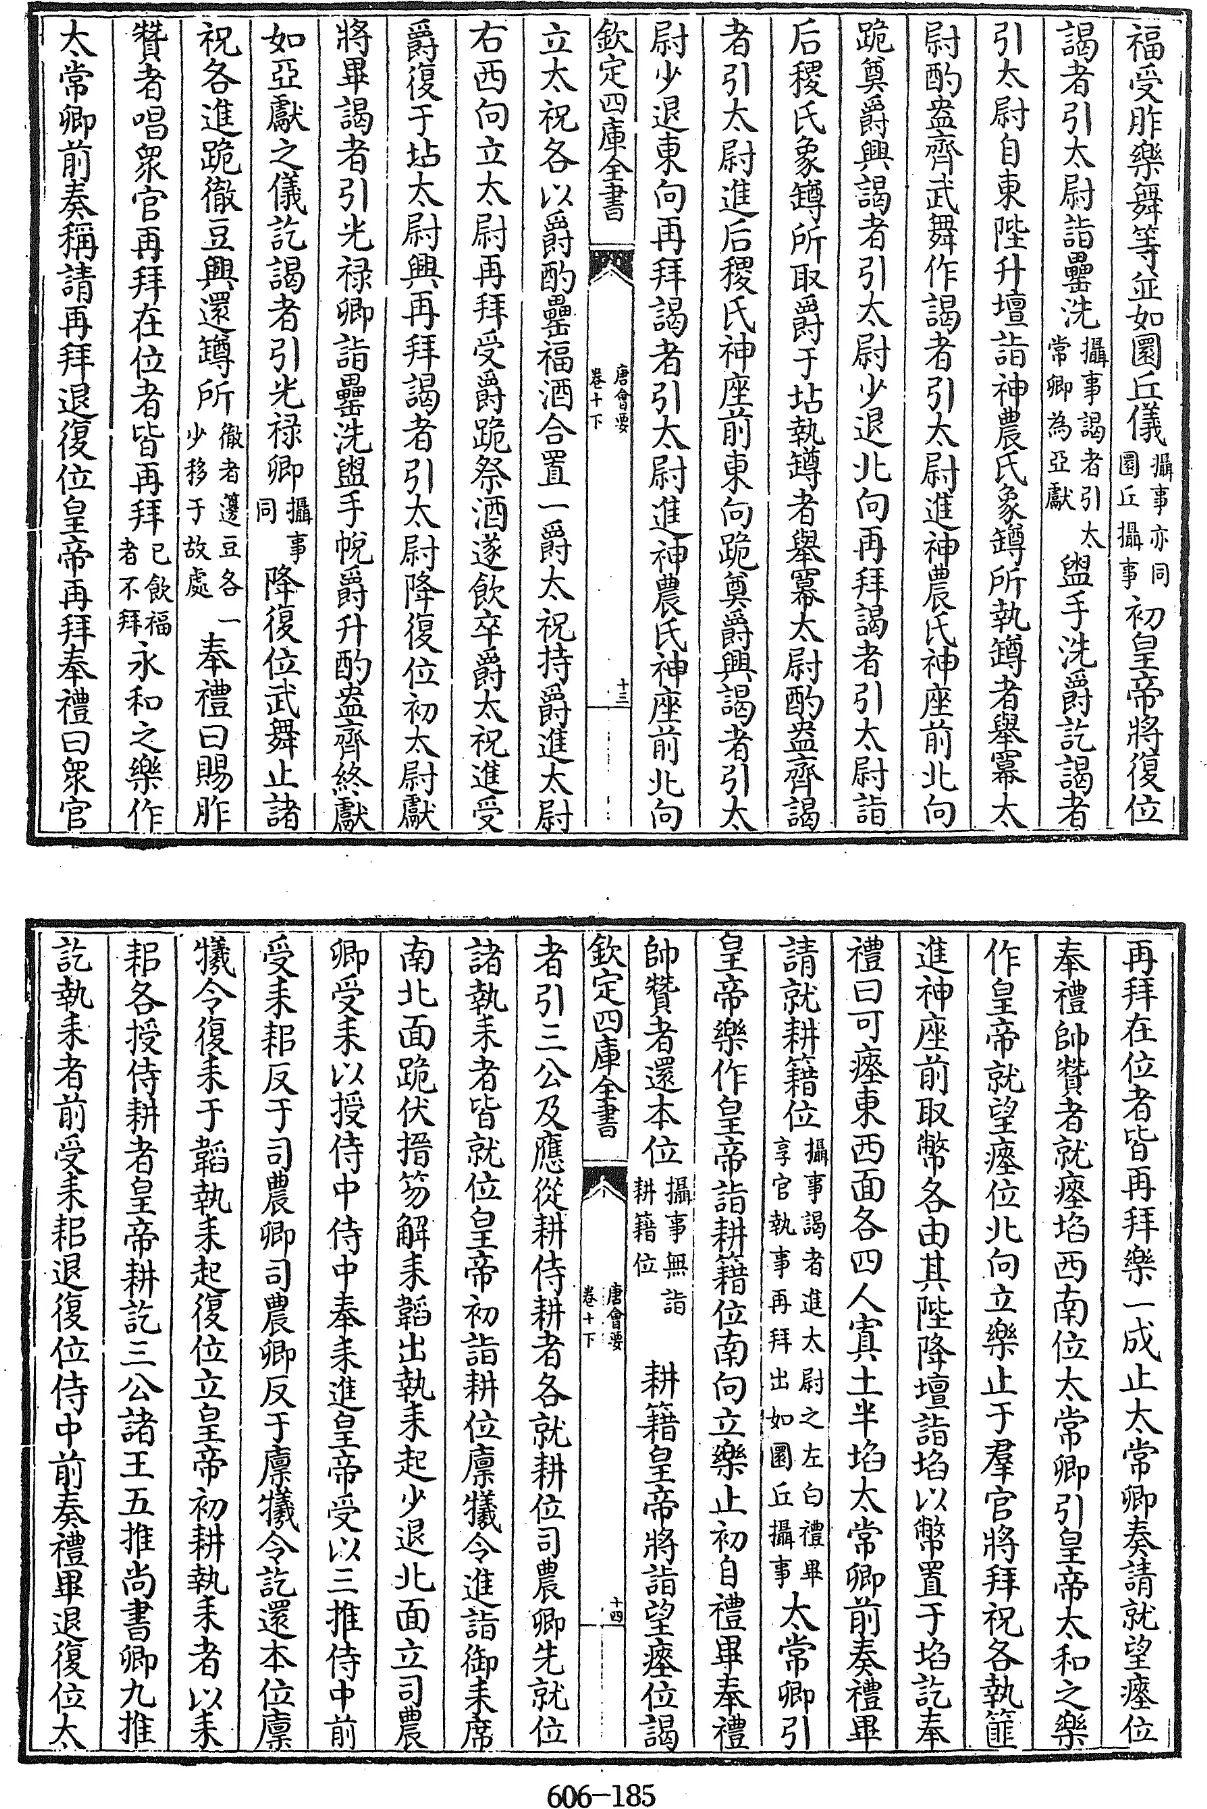 福受胙樂舞等並如圜丘儀攝事亦同圜丘攝事初皇帝將復位
謁者引太尉詣罍洗攝事謁者引太常卿為亞獻盥手洗爵訖謁者
引太尉自東陛升壇詣神農氏象罇所執罇者舉冪太
尉酌盎齊武舞作謁者引太尉進神農氏神座前北向
跪奠爵興謁者引太尉少退北向再拜謁者引太尉詣
后稷氏象罇所取爵于坫執罇者舉冪太尉酌盎齊謁
者引太尉進后稷氏神座前東向跪奠爵興謁者引太
尉少退東向再拜謁者引太尉進神農氏神座前北向
欽定四庫全書
唐會要
卷十下
十三
立太祝各以爵酌罍福酒合置一爵太祝持爵進太尉
右西向立太尉再拜受爵跪祭酒遂飲卒爵太祝進受
爵復于坫太尉興再拜謁者引太尉降復位初太尉獻
將畢謁者引光祿卿詣罍洗盥手帨爵升酌盎齊終獻
如亞獻之儀訖謁者引光祿卿攝事同降復位武舞止諸
祝各進跪徹豆興還罇所徹者籩豆各一少移于故處奉禮曰賜胙
贊者唱衆官再拜在位者皆再拜已飲福者不拜永和之樂作
太常卿前奏稱請再拜退復位皇帝再拜奉禮曰衆官
再拜在位者皆再拜樂一成止太常卿奏請就望瘞位
奉禮帥贊者就瘞埳西南位太常卿引皇帝太和之樂
作皇帝就望瘞位北向立樂止于羣官將拜祝各執篚
進神座前取幣各由其陛降壇詣埳以幣置于埳訖奉
禮曰可瘞東西面各四人寘土半埳太常卿前奏禮畢
請就耕籍位攝事謁者進太尉之左白禮畢享官執事再拜出如圜丘攝事太常卿引
皇帝樂作皇帝詣耕籍位南向立樂止初白禮畢奉禮
帥贊者還本位攝事無詣耕籍位耕籍皇帝將詣望瘞位謁
欽定四庫全書
唐會要
卷十下
十四
者引三公及應從耕侍耕者各就耕位司農卿先就位
諸執耒者皆就位皇帝初詣耕位廩犧令進詣御耒席
南北面跪伏搢笏解耒韜出執耒起少退北面立司農
卿受耒以授侍中侍中奉耒進皇帝受以三推侍中前
受耒耜反于司農卿司農卿反于廩犧令訖還本位廩
犧令復耒于韜執耒起復位立皇帝初耕執耒者以耒
耜各授侍耕者皇帝耕訖三公諸王五推尚書卿九推
訖執耒者前受耒耜退復位侍中前奏禮畢退復位太
606-185